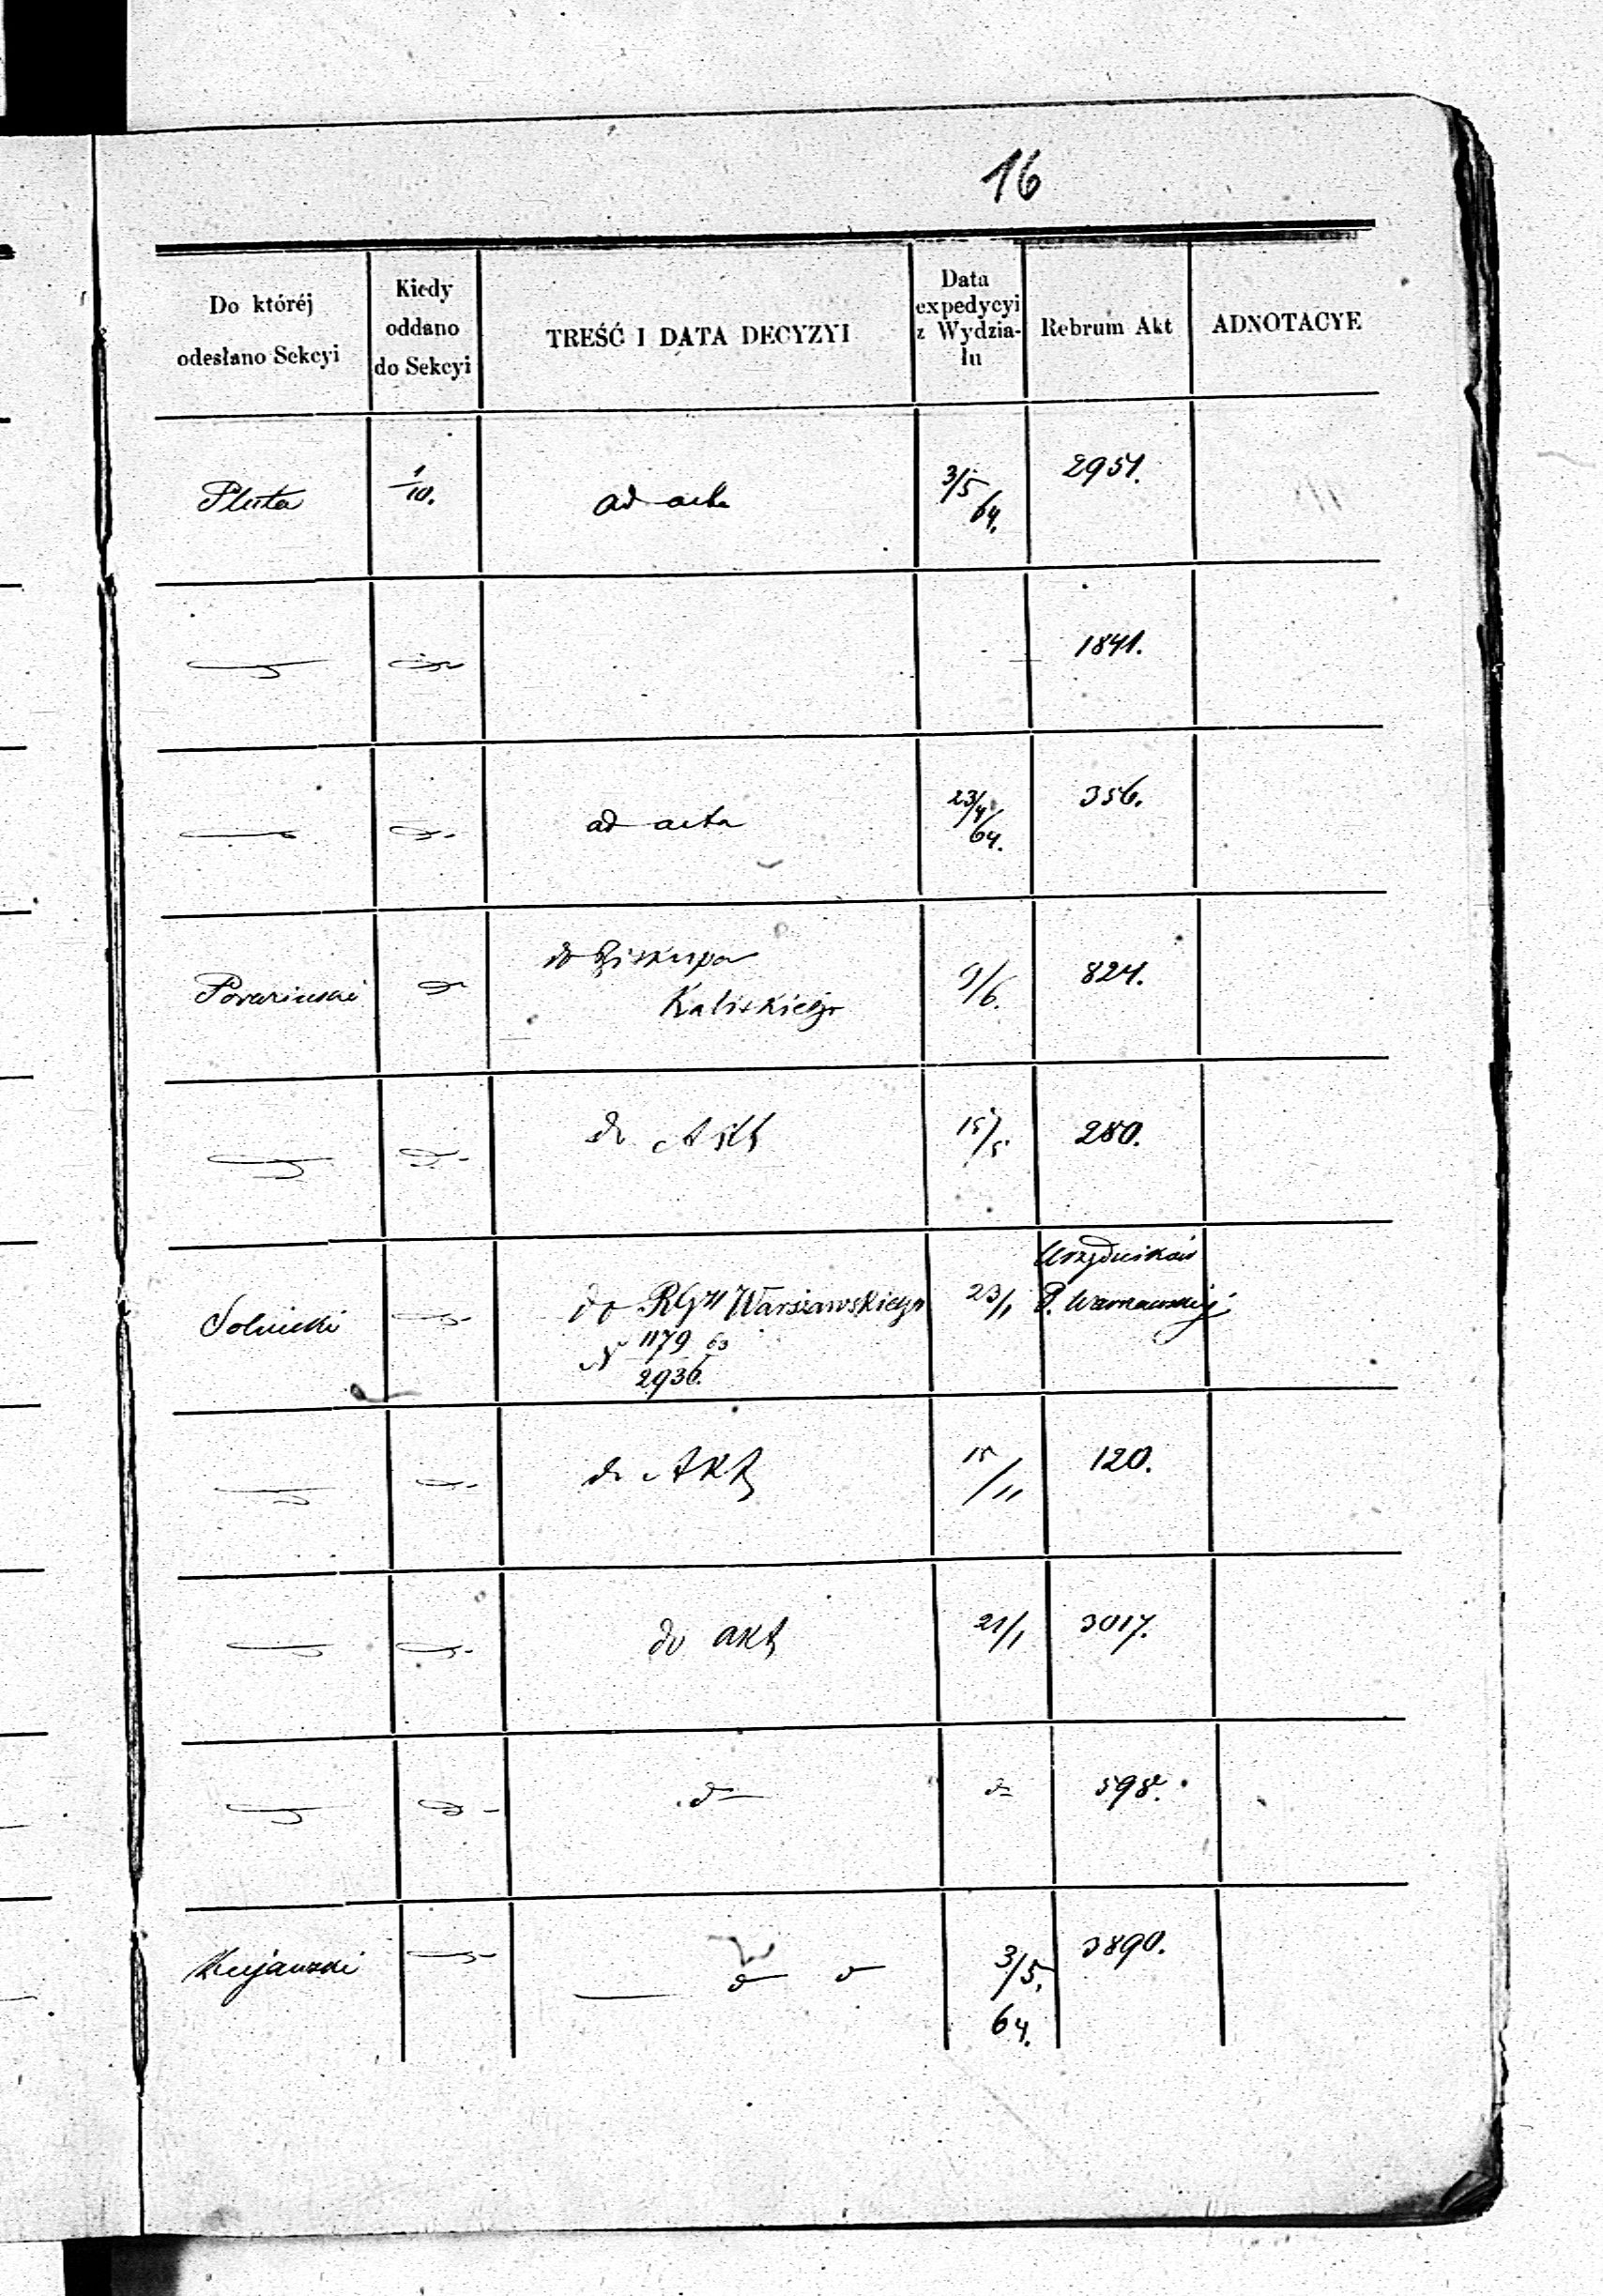 16
Do któréj
odesłano Sekcyi
Kiedy
oddano
do Sekcyi
TREŚĆ I DATA DECYZYI
Data
expedycyi
z Wydzia-
łu
Rebrum Akt
ADNOTACYE
Pluta
1/10.
ad acta
3/5
64.
2951.
1841.
ad acta
23/4
64.
356.
do Biskupa
Kaliskiego
9/6.
824.
do Akt
15/5.
280.
Solnicki
do RGu Warszawskiego
N 1179 63
2936.
23/1
Urzędników
do Akt
15/11
120.
do akt
21/1
3017.
do
do
598.
Kujawski
do do
3/5.
64.
3890.